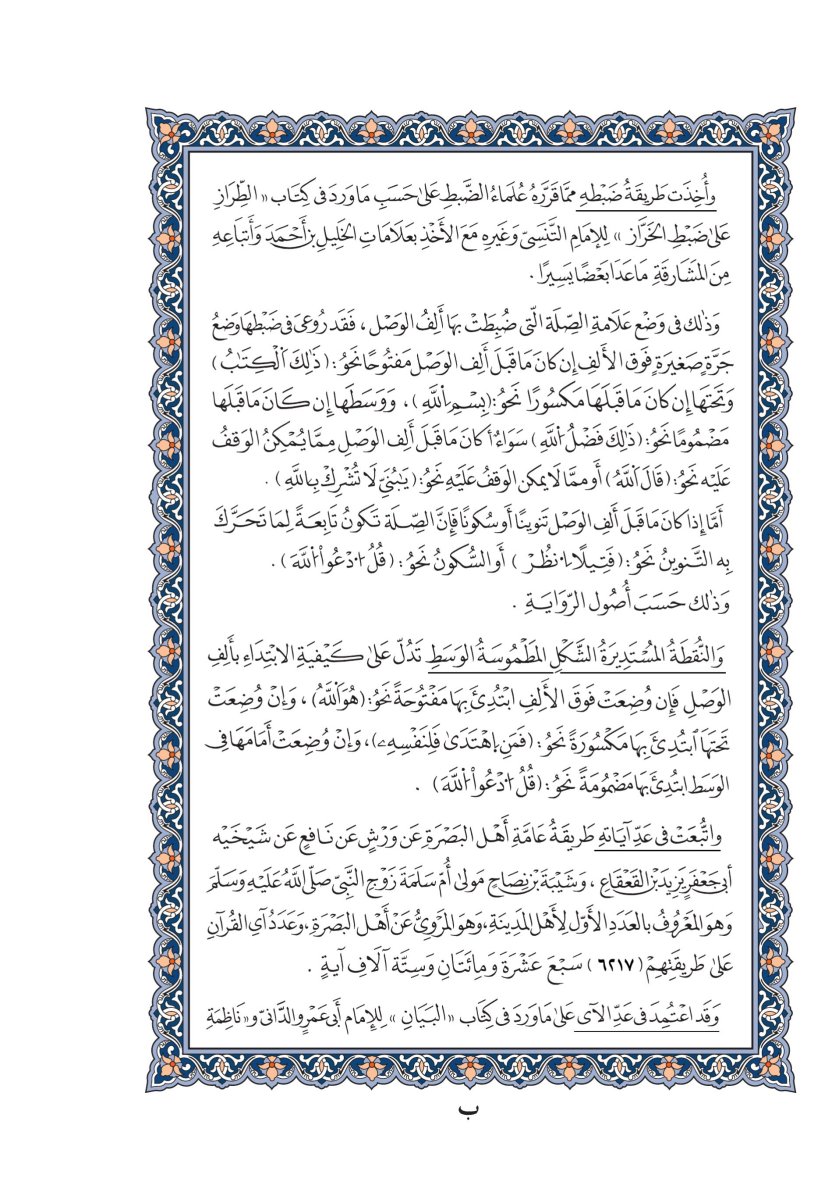 وَأُخِذَت طَرِيقَةُ ضَبْطِهِ مِمَّا قَرَّرَهُ عُلَمَاءُ الضَّبطِ عَلَىٰ حَسَبِ مَا وَرَدَ فِى كِتَاب « الطِّرَازِ
عَلَىٰ ضَبْطِ الخَرَّازِ » لِلإِمَامِ التَّنَسِىِّ وَغَيْرِهِ مَعَ الأَخْذِ بعَلَامَاتِ الخَلِيلِ بْنِ أَحْمَدَ وَأَتبَاعِهِ
مِنَ المَشَارقَةِ مَاعَدَا بَعْضًا يَسِيرًا .
وَذَٰلك فى وَضْع عَلَامَةِ الصِّلَة الَّتى ضُبِطَتْ بهَا أَلِفُ الوَصْل ، فَقَد رُوعِىَ فى ضَبْطِهَا وَضْعُ
جَرَّةٍ صَغِيرَةٍ فَوقَ الأَلفِ إن كانَ مَا قَبلَ أَلِف الوَصْل مَفتُوحًا نَحوُ : ( ذَٰلِكَ اَ۬لْكِتَٰبُ )
وَتَحتَهَا إِن كانَ مَا قَبلَهَا مَكسُورًا نَحوُ : (بِسْمِ اِ۬للَّهِ ) ، وَوَسَطَهَا إِن كَانَ مَا قَبلَهَا
مَضْمُومًا نَحوُ : ( ذَٰلِكَ فَضْلُ اُ۬للَّهِ ) سَوَاءٌ أكانَ مَا قَبلَ أَلِفِ الوَصْلِ مِمَّا يُمْكِنُ الوَقفُ
عَلَيْه نَحوُ : ( قَالَ اَ۬للَّهُ ) أو ممَّا لَا يمكن الوَقفُ عَلَيْهِ نَحوُ : ( يَٰبُنَىِّ لَا تُشْرِكْ بِاللَّهِ ) .
أَمَّا إذَا كانَ مَا قَبلَ ألِف الوَصْل تَنوينًا أَو سُكونًا فَإِنَّ الصِّلَة تَكونُ تَابِعَةً لِمَا تَحَرَّكَ
بِه التَّنوِينُ نَحوُ : ( فَتِيلًا اُ۟نظُرْ ) أَو السُّكونُ نَحوُ : ( قُلُ اُ۟دْعُواْ اُ۬للَّهَ ) .
وَذَٰلك حَسَبَ أُصُول الرِّوَايَةِ .
وَالنُّقطَةُ المُسْتَدِيرَةُ الشَّكْلِ المَطْمُوسَةُ الوَسَطِ تَدُلّ عَلَىٰ كَيْفيَةِ الابْتِدَاءِ بأَلِفِ
الوَصْلِ فَإِن وُضِعَتْ فَوقَ الأَلِفِ ابْتُدِئَ بِهَا مَفْتُوحَةً نَحوُ : (هُوَ اَ۬للَّهُ) ، وَإِنْ وُضِعَتْ
تَحتَهَا ابتُدِئَ بِهَا مَكْسُورَةً نَحوُ : (فَمَنِ اِ۪هْتَدَىٰ فَلِنَفْسِهِۦ) ، وَإِنْ وُضِعَتْ أَمَامَهَا فى
الوَسَط ابتُدِئَ بهَا مَضْمُومَةً نَحوُ : (قُلُ اُ۟دْعُواْ اُ۬للَّهَ) .
واتُّبِعَتْ فى عَدِّ آيَاتهِ طَرِيقَةُ عَامَّةِ أَهْلِ البَصْرَةِ عَن وَرْشٍ عَن نَافِعٍ عَن شَيْخَيْهِ
أبِى جَعْفَرٍ يَزِيدَ بْنِ القَعْقَاعِ ، وَشَيْبَةَ بْنِ نِصَاحٍ مَولَىٰ أُمِّ سَلَمَةَ زَوْجِ النَّبِىّ صَلَّى اللَّهُ عَلَيْهِ وَسَلَّمَ
وَهوَ المَعْرُوفُ بالعَدَدِ الأَوَّلِ لِأَهْلِ المَدِينَةِ، وَهوَ المَرْوِىُّ عَنْ أَهْلِ البَصْرَةِ، وَعَدَدُ آىِ القُرآنِ
عَلَىٰ طَرِيقَتِهِمْ ( ٦٢١٧ ) سَبْعَ عَشْرَةَ وَمِائَتَانِ وَسِتَّة آلَافِ آيةٍ .
وَقَد اعْتُمِدَ فى عَدِّ الآى عَلَىٰ مَا وَرَدَ فى كِتَاب « البَيَانِ » لِلإِمَام أَبى عَمْرٍو الدَّانىّ و« نَاظِمَةِ
ب